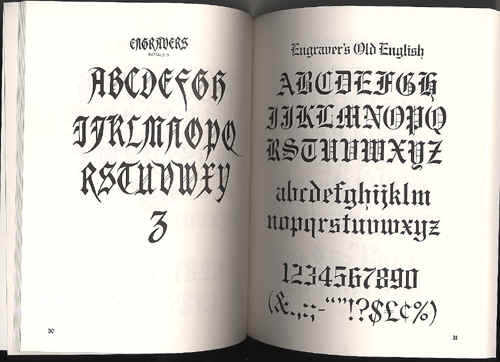 ENGRAVERS
ABCDEFGH
IJKLMNOPQ
RSTUVWXY
Z
30
Engraver's Old English
ABCDEFGH
IJKLMNOPQ
RSTUVWXYZ
abcdefghijklm
nopqrstuvwxyz
1234567890
(&.,:;-“”!?$£¢%)
31